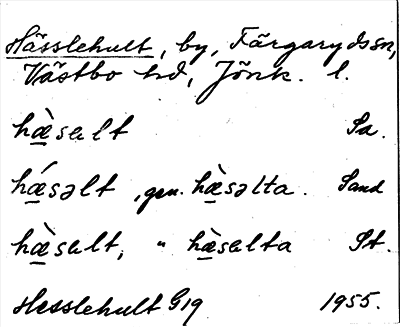 Hässlehult, by, Färgaryds sn,
Västbo hd, Jönk. l.
hæ̀salt Sa.
hǽsəlt, gen. hæ̀səlta. Sand
hæ̀salt, " hæ̀salta St.
Hesslehult G19 1955.